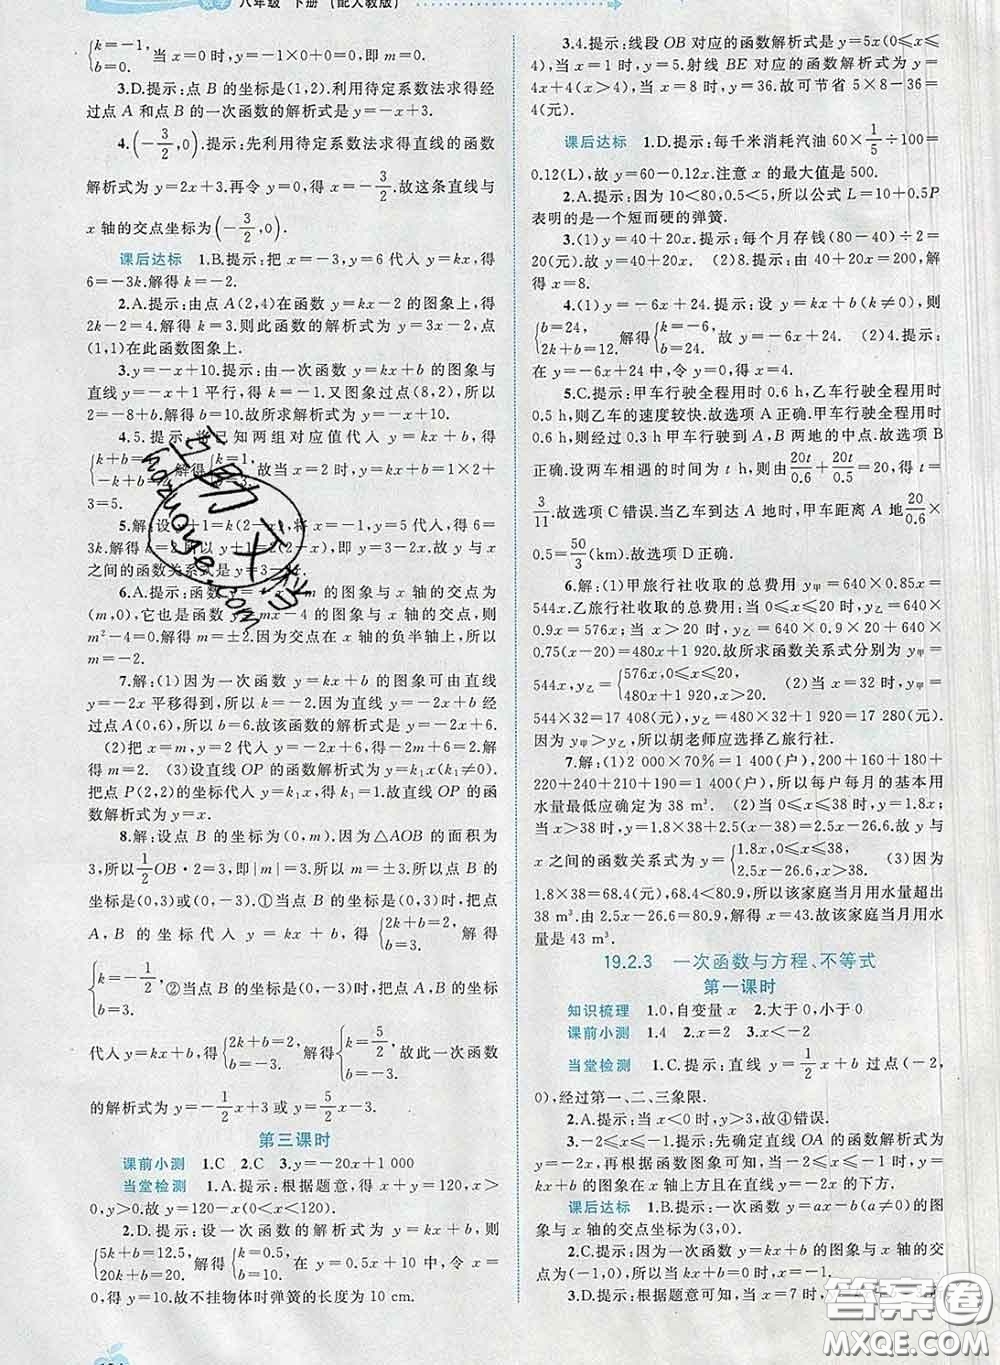 数学 八年级 下册 (配人教版)
{k=-1,
b=0. 当 x=0 时,y=-1×0=0,即 m=0.
3.D.提示:点 B 的坐标是(1,2).利用待定系数法求得经
过点 A 和点 B 的一次函数的解析式是 y=-x+3.
4.(-3/2,0).提示:先利用待定系数法求得直线的函数
解析式为 y=2x+3.再令 y=0,得 x=-3/2.故这条直线与
x 轴的交点坐标为(-3/2,0).
课后达标 1.B.提示:把 x=-3,y=6 代入 y=kx,得
6=-3k.解得 k=-2.
2.A.提示:由点 A(2,4)在函数 y=kx-2 的图象上,得
2k-2=4.解得 k=3.则此函数的解析式为 y=3x-2,点
(1,1)在此函数图象上.
3.y=-x+10.提示:由一次函数 y=kx+b 的图象与
直线 y=-x+1 平行,得 k=-1.又图象过点(8,2),所以
2=-8+b.解得 b=10.故所求解析式为 y=-x+10.
4.5.提示:将已知两组对应值代入 y=kx+b,得
{k+b=4,
-k+b= 解得{k=1,
b= 故当 x=2 时,y=kx+b=1×2+
3=5.
5.解:设 y+1=k(2-x),将 x= 得
k=2.所以 y+1=2(2-x),即 y=3-2x.故 y 与 x
之间的函数关系式是 y=3-2x.
6.A.提示:函数 的图象与 x 轴的交点为
(m,0),它也是函数 y=mx-4 的图象与 x 轴的交点,则
m²-4=0.解得 m=±2.因为交点在 x 轴的负半轴上,所以
m=-2.
7.解:(1)因为一次函数 y=kx+b 的图象可由直线
y=-2x 平移得到,所以 k=-2.因为直线 y=-2x+b 经
过点 A(0,6),所以 b=6.故该函数的解析式是 y=-2x+6.
(2)把 x=m,y=2 代入 y=-2x+6,得 2=-2m+6.解得
m=2. (3)设直线 OP 的函数解析式为 y=k₁x(k₁≠0).
把点 P(2,2)的坐标代入 y=k₁x,得 k₁=1.故直线 OP 的函
数解析式为 y=x.
8.解:设点 B 的坐标为(0,m).因为△AOB 的面积为
3,所以1/2OB·2=3,即|m|=3.所以 m=±3.所以点 B 的
坐标为(0,3)或(0,-3).①当点 B 的坐标为(0,3)时,把点
A,B 的坐标代入 y=kx+b,得{2k+b=2,
b=3. 解得
{k=-1/2,
b=3. ②当点 B 的坐标是(0,-3)时,把点 A,B 的坐标
代入 y=kx+b,得{2k+b=2,
b=-3. 解得{k=5/2,
b=-3. 故此一次函数
的解析式为 y=-1/2x+3 或 y=5/2x-3.
第三课时
课前小测 1.C 2.C 3.y=-20x+1 000
当堂检测 1.A.提示:根据题意,得 x+y=120,x>
0,故 y=120-x(0<x<120).
2.D.提示:设一次函数的解析式为 y=kx+b,则
{5k+b=12.5,
20k+b=20. 解得{k=0.5,
b=10. 在 y=0.5x+10 中,令 x=0,得
y=10.故不挂物体时弹簧的长度为 10 cm.
3.4.提示:线段 OB 对应的函数解析式是 y=5x(0≤x≤
4),当 x=1 时,y=5.射线 BE 对应的函数解析式为 y=
4x+4(x>4),当 x=8 时,y=36.故可节省 5×8-36=
4(元).
课后达标 1.D.提示:每千米消耗汽油 60×1/5÷100=
0.12(L),故 y=60-0.12x.注意 x 的最大值是 500.
2.A.提示:因为 10<80,0.5<5,所以公式 L=10+0.5P
表明的是一个短而硬的弹簧.
3.(1)y=40+20x.提示:每个月存钱(80-40)÷2=
20(元).故 y=40+20x. (2)8.提示:由 40+20x=200,解得
x=8.
4.(1)y=-6x+24.提示:设 y=kx+b(k≠0),则
{b=24,
2k+b=12. 解得{k=-6,
b=24. 故 y=-6x+24. (2)4.提示:
在 y=-6x+24 中,令 y=0,得 x=4.
5.C.提示:甲车行驶全程用时 0.6 h,乙车行驶全程用时
0.5 h,则乙车的速度较快.故选项 A 正确.甲车行驶全程用时
0.6 h,则经过 0.3 h 甲车行驶到 A,B 两地的中点.故选项 B
正确.设两车相遇的时间为 t h,则由20t/0.6+20t/0.5=20,得 t=
3/11.故选项 C 错误.当乙车到达 A 地时,甲车距离 A 地20/0.6×
0.5=50/3(km).故选项 D 正确.
6.解:(1)甲旅行社收取的总费用 y甲=640×0.85x=
544x.乙旅行社收取的总费用:当 0≤x≤20 时,y乙=640×
0.9x=576x;当 x>20 时,y乙=640×0.9×20+640×
0.75(x-20)=480x+1 920.故所求函数关系式分别为 y甲=
544x,y乙={576x,0≤x≤20,
480x+1 920,x>20. (2)当 x=32 时,y甲=
544×32=17 408(元),y乙=480×32+1 920=17 280(元).
因为 y甲>y乙,所以胡老师应选择乙旅行社.
7.解:(1)2 000×70%=1 400(户),200+160+180+
220+240+210+190=1 400(户),所以每户每月的基本用
水量最低应确定为 38 m³. (2)当 0≤x≤38 时,y=1.8x;
当 x>38 时,y=1.8×38+2.5(x-38)=2.5x-26.6.故 y 与
x 之间的函数关系式为 y={1.8x,0≤x≤38,
2.5x-26.6,x>38. (3)因为
1.8×38=68.4(元),68.4<80.9,所以该家庭当月用水量超出
38 m³.由 2.5x-26.6=80.9,解得 x=43.故该家庭当月用水
量是 43 m³.
19.2.3 一次函数与方程、不等式
第一课时
知识梳理 1.0,自变量 x 2.大于 0,小于 0
课前小测 1.4 2.x=2 3.x<-2
当堂检测 1.C.提示:直线 y=1/2x+b 过点(-2,
0),经过第一、二、三象限.
2.A.提示:当 x<0 时,y>3,故④错误.
3.-2≤x≤-1.提示:先确定直线 OA 的函数解析式为
y=2x,再根据函数图象可知,当 -2≤x≤-1 时,直线 y=
kx+b 在 x 轴上方且在直线 y=2x 的下方.
课后达标 1.B.提示:一次函数 y=ax-b(a≠0)的图
象与 x 轴的交点坐标为(3,0).
2.C.提示:因为一次函数 y=kx+b 的图象与 x 轴的交
点为(-1,0),所以当 kx+b=0 时,x=-1.
3.D.提示:根据题意可知,当 x=7 时,y
互助文档
huzuoye.com
答案圈
MXQE.COM